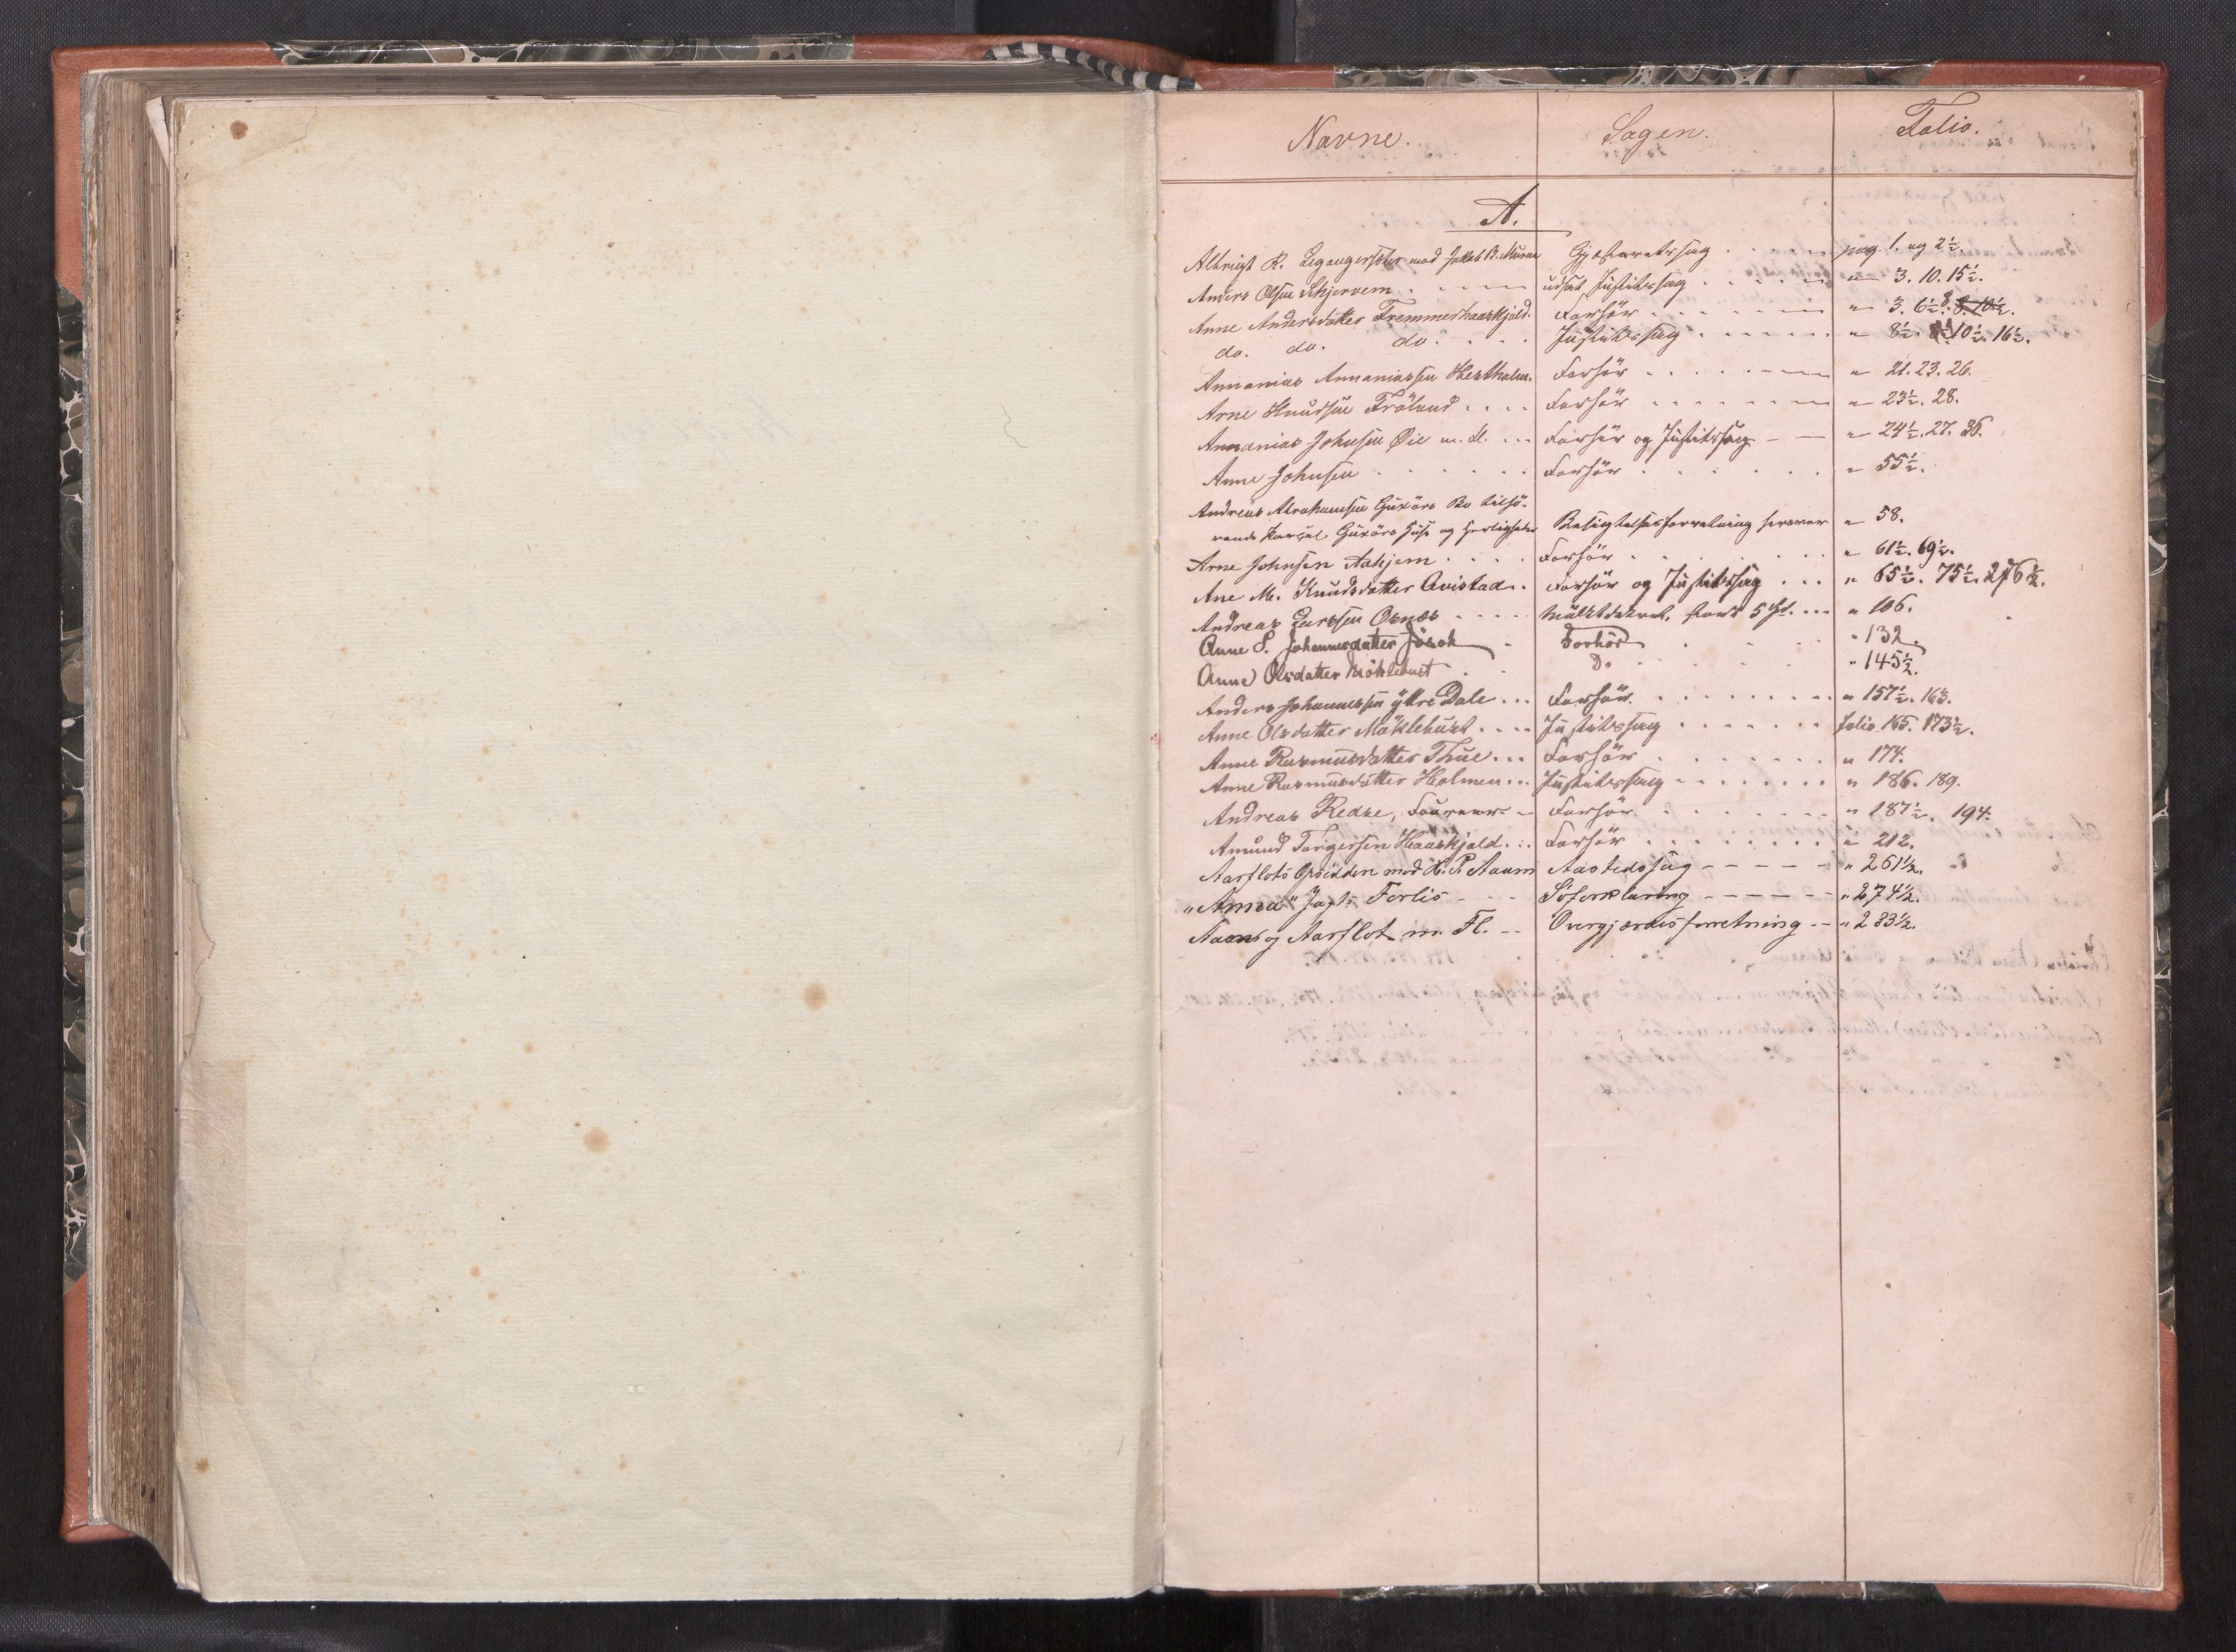 Navne. Sagen. Folio.
A.
Albrigt R. Legangersen mod Jakob B. Gjæsteretssag pag. 1. og 2½.
Anders Olsen Skjervem udsat Justitssag " 3. 10. 15½.
Anne Andersdatter Fremmerhaaskjold. Forhör " 3. 6½. 8. 8. 10½.
do. do. do. Justitssag " 8½. 10½. 16½.
Annanias Annaniassen Hestholm. Forhör " 21. 23. 26.
Arne Knudsen Fröland Forhör " 23½. 28.
Annanias Johnsen Øie m. fl. Forhör og Justitssag " 24½. 27. 36.
Anne Johnsen Forhör " 55½.
Andreas Abrahamsen Gurörs Bo tilhö-
rende Gurörs Huse og Herligheder Besigtelsesforretning herover " 58.
Arne Johnsen Aahjem Forhör " 61½. 69½.
Ane M. Knudsdatter Qvistad Forhör og Justitssag " 65½. 75½. 276½.
Andreas Larssen Osnes Mulktdekret, stort 5 Spd. " 106.
Anne S. Johannesdatter Forhör " 132.
Anne Olsdatter Möklebust Do " 145½.
Anders Johannessen ytre Dale Forhör " 157½. 163.
Anne Olsdatter Möklebust Justitssag folio 165. 173½.
Anne Rasmusdatter Thue Forhör " 174.
Anne Rasmusdatter Holmen Justitssag " 186. 189.
Andreas Redse, Forhör " 187½. 194.
Amund Torgersen Haaskjold Forhör " 212.
Aarflots Opsidder mod H. P. Aam Aastedssag " 261½.
"Anna" Jagts Forlis Söforklaring " 274½.
Aam og Aarflot m. Fl. Overgjærdesforretning " 283½.